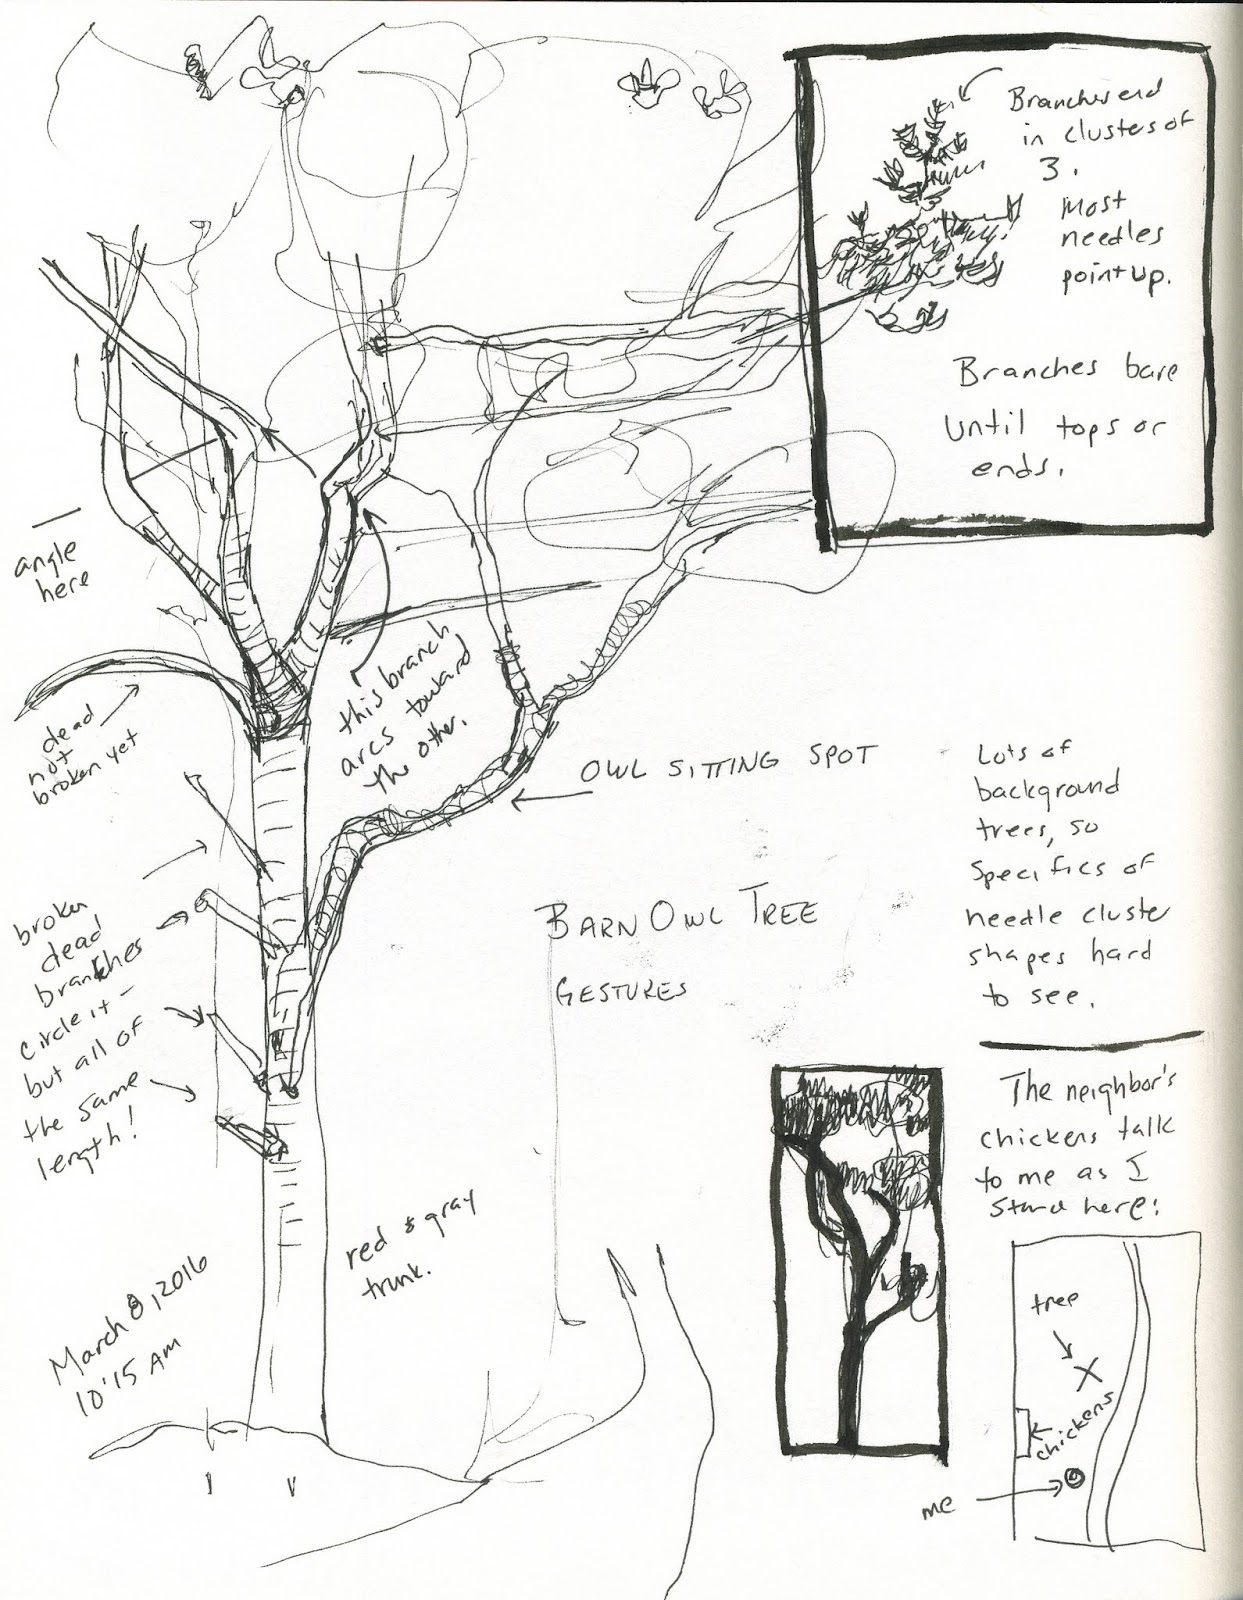 Branches end
in clusters of
3.
Most
needles
point up.
Branches bare
until tops or
ends.
angle
here
this branch
arcs toward
the other.
dead
not
broken yet
OWL SITTING SPOT
Lots of
background
trees, so
specifics of
needle cluster
shapes hard
to see.
broken
dead
branches
circle it –
but all of
the same
length!
BARN OWL TREE
GESTURES
The neighbor's
chickens talk
to me as I
stand here:
red & gray
trunk.
March 8, 2016
10:15 AM
tree
X
chickens
me